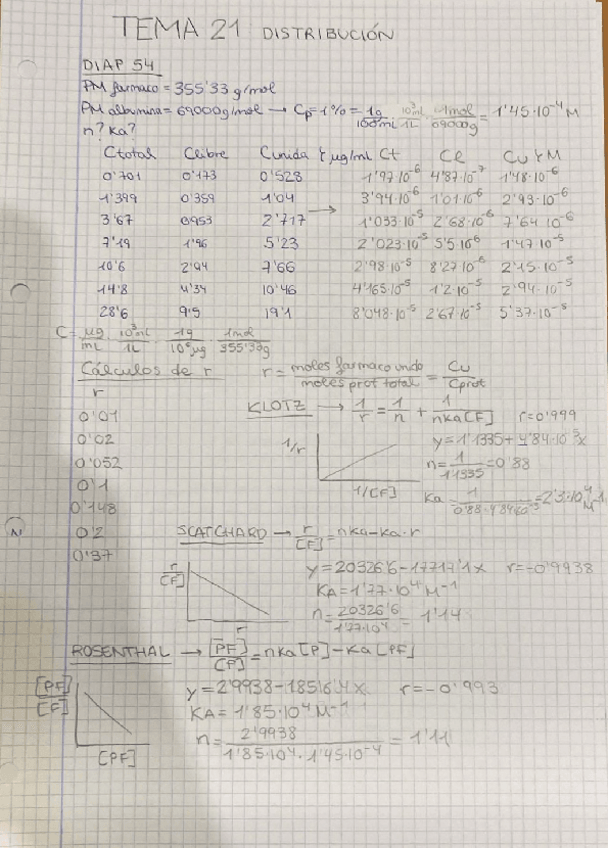 TEMA 21 DISTRIBUCIÓN
DIAP 54
PM farmaco = 355'33 g/mol
PM albumina = 69000g/mol → Cp=1% = 1g/100mL · 10³mL/1L · 1mol/69000g = 1'45·10⁻⁴ M
n? Ka?
Ctotal Clibre Cunida } μg/mL Ct CL Cu } M
0'701 0'173 0'528 1'97·10⁻⁶ 4'87·10⁻⁷ 1'48·10⁻⁶
1'399 0'359 1'04 3'94·10⁻⁶ 1'01·10⁻⁶ 2'93·10⁻⁶
3'67 0'953 2'717 → 1'033·10⁻⁵ 2'68·10⁻⁶ 7'64·10⁻⁶
7'19 1'96 5'23 2'023·10⁻⁵ 5'5·10⁻⁶ 1'47·10⁻⁵
10'6 2'94 7'66 2'98·10⁻⁵ 8'27·10⁻⁶ 2'15·10⁻⁵
14'8 4'34 10'46 4'165·10⁻⁵ 1'2·10⁻⁵ 2'94·10⁻⁵
28'6 9'5 19'1 8'048·10⁻⁵ 2'67·10⁻⁵ 5'37·10⁻⁵
C = μg/mL · 10³mL/1L · 1g/10⁶μg · 1mol/355'33g
Cálculos de r r = moles farmaco unido/moles prot total = Cu/Cprot
r
KLOTZ → 1/r = 1/n + 1/nKa[F] r=0'999
0'01
0'02
0'052
0'1
0'148
0'2
0'37
y=1'1335+4'84·10⁻⁵x
1/r
n = 1/1'1335 = 0'88
1/[F]
Ka = 1/0'88·4'84·10⁻⁵ = 2'3·10⁴ M⁻¹
SCATCHARD → r/[F] = nKa-Ka·r
r/[F]
r
y=20326'6-17717'1x r=-0'9938
KA=1'77·10⁴ M⁻¹
n = 20326'6/1'77·10⁴ = 1'14
ROSENTHAL → [PF]/[F] = nKa[P]-Ka[PF]
[PF]/[F]
[PF]
y=2'9938-18516'4x r=-0'993
KA=1'85·10⁴M⁻¹
n = 2'9938/1'85·10⁴·1'45·10⁻⁴ = 1'11